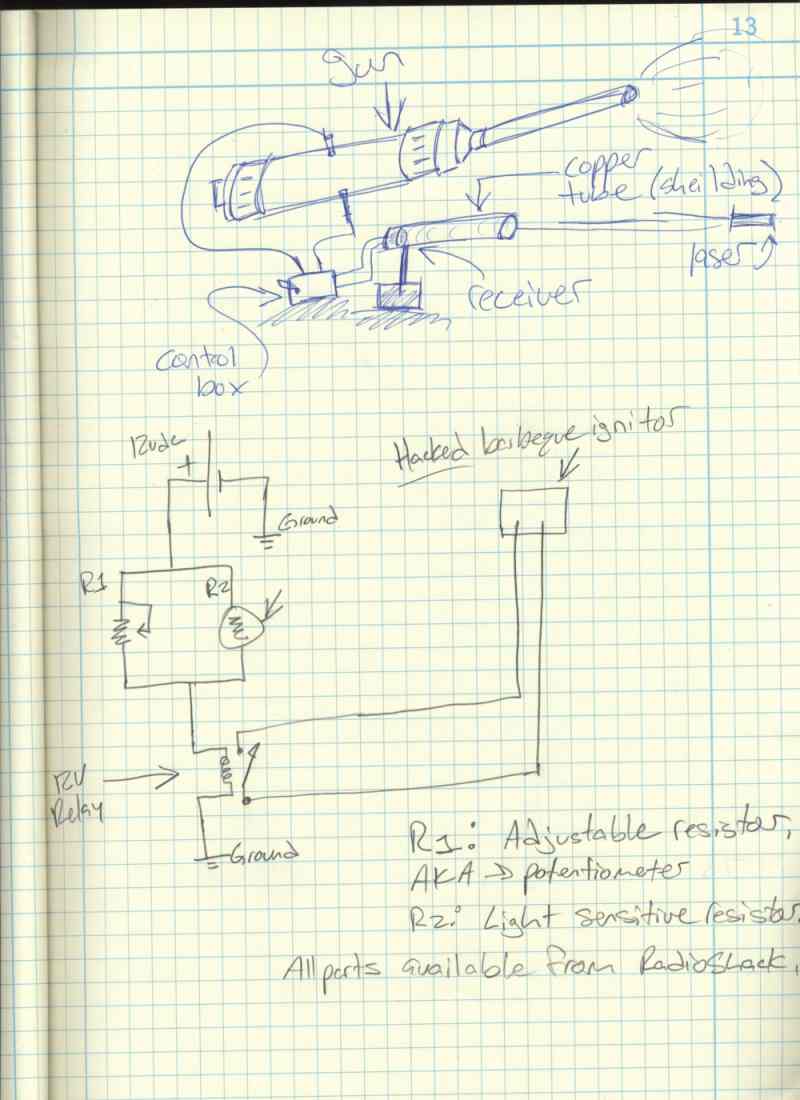 13
gun
copper
tube (sheilding)
laser
receiver
control
box
12vdc
+
Hacked barbeque ignitor
Ground
R1
R2
12V
Relay
Ground
R1: Adjustable resistor,
AKA → potentiometer
R2: Light sensitive resistor.
All parts available from RadioShack.